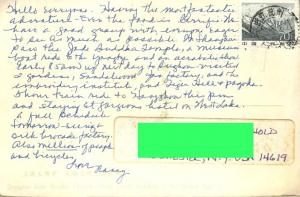 Hello everyone. Having the most fantastic
adventure. Even the food is terrific. We
have a good group with everyone eager
to see as much as possible. In Shanghai
saw the Jade Buddha Temple, a museum
boat ride to the Yangtze and an acrobat show.
Early 6 am next day to Suzhou visited
2 gardens, Sandalwood fan factory, and the
embroidery institute, and Tiger Hill + pagoda.
3 hours train ride to Hangzhou this pm
and staying at gorgeous hotel on West Lake.
A full schedule
tomorrow - seeing
silk brocade factory.
Also million of people
and bicycles.
Love
中国人民邮政
70
HOLD
N.Y. USA 14619